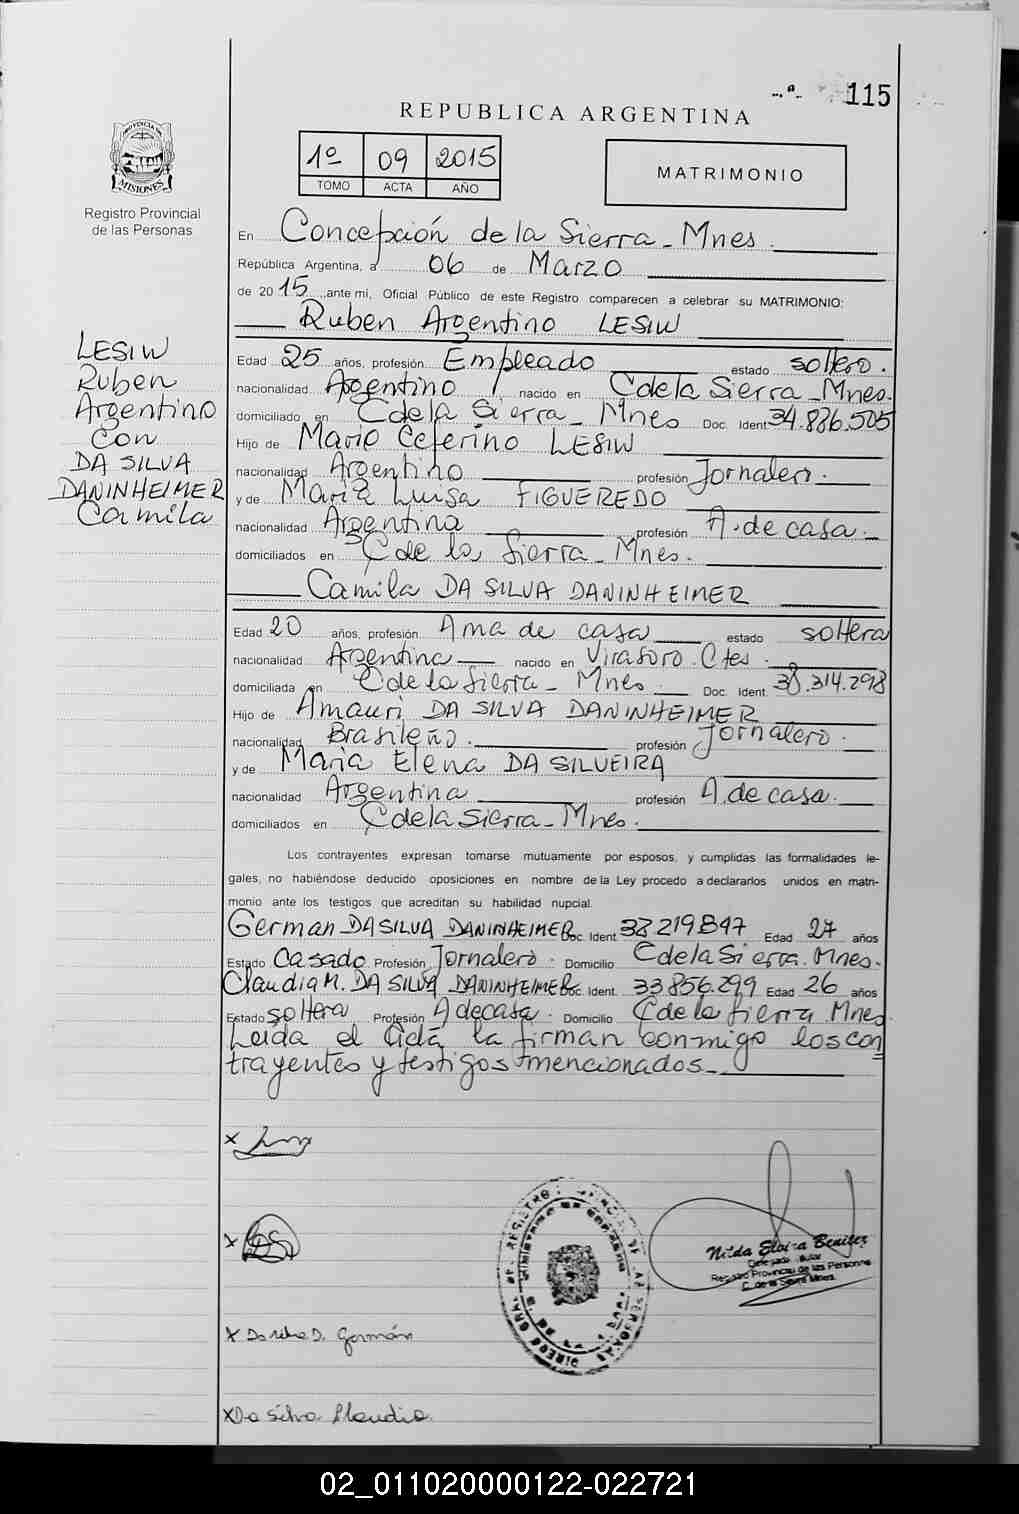 115
REPUBLICA ARGENTINA
PROVINCIA DE
MISIONES
Registro Provincial
de las Personas
1º 09 2015
TOMO ACTA AÑO
MATRIMONIO
En Concepción de la Sierra - Mnes.
República Argentina, a 06 de Marzo
de 2015, ante mi, Oficial Público de este Registro comparecen a celebrar su MATRIMONIO:
Ruben Argentino LESIW
LESIW
Ruben
Argentino
Con
DA SILVA
DANINHEIMER
Camila
Edad 25 años, profesión Empleado estado soltero.
nacionalidad Argentino nacido en C de la Sierra - Mnes.
domiciliado en C de la Sierra - Mnes Doc. Ident. 34.886.505
Hijo de Mario Ceferino LESIW
nacionalidad Argentino profesión Jornalero.
y de Maria Luisa FIGUEREDO
nacionalidad Argentina profesión A. de casa.
domiciliados en C de la Sierra - Mnes.
Camila DA SILVA DANINHEIMER
Edad 20 años, profesión Ama de casa estado soltera
nacionalidad Argentina nacido en Virasoro. Ctes.
domiciliada en C de la Sierra - Mnes. Doc. Ident. 38.314.298
Hijo de Amauri DA SILVA DANINHEIMER
nacionalidad Brasileño. profesión Jornalero.
y de Maria Elena DA SILVEIRA
nacionalidad Argentina profesión A. de casa.
domiciliados en C de la Sierra - Mnes.
Los contrayentes expresan tomarse mutuamente por esposos, y cumplidas las formalidades le-
gales, no habiéndose deducido oposiciones en nombre de la Ley procedo a declararlos unidos en matri-
monio ante los testigos que acreditan su habilidad nupcial.
German DA SILVA DANINHEIMER Doc. Ident. 33219847 Edad 27 años
Estado Casado Profesión Jornalero. Domicilio C de la Sierra. Mnes.
Claudia M. DA SILVA DANINHEIMER Doc. Ident. 33.856.299 Edad 26 años
Estado soltera Profesión A de casa. Domicilio C de la Sierra Mnes
Leida el acta la firman conmigo los con
trayentes y testigos mencionados.
x
x
x Da silva D. Germán
x Da Silva Claudia.
Nilda Elvira Benitez
Registro Provincial de las Personas
C. de la Sierra Mnes.
02_011020000122-022721